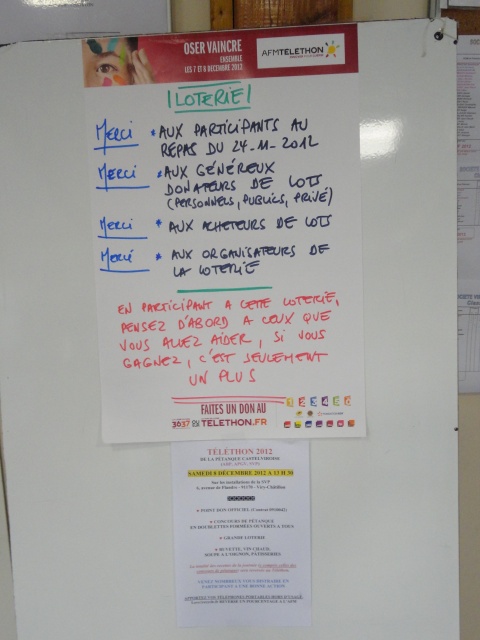 OSER VAINCRE
ENSEMBLE
LES 7 ET 8 DECEMBRE 2012
AFMTELETHON
LOTERIE
MERCI * AUX PARTICIPANTS AU
REPAS DU 24-11-2012
MERCI * AUX GÉNÉREUX
DONATEURS DE LOTS
(PERSONNELS, PUBLICS, PRIVÉ)
MERCI * AUX ACHETEURS DE LOTS
MERCI * AUX ORGANISATEURS DE
LA LOTERIE
EN PARTICIPANT A CETTE LOTERIE,
PENSEZ D'ABORD A CEUX QUE
VOUS ALLEZ AIDER, SI VOUS
GAGNEZ, C'EST SEULEMENT
UN PLUS
FAITES UN DON AU
3637 OU TELETHON.FR
TELETHON 2012
DE LA PÉTANQUE CASTELVIROISE
SAMEDI 8 DÉCEMBRE 2012 A 13 H 30
Sur les installations de la
91170 - Viry-Châtillon
POINT DON OFFICIEL
CONCOURS DE PÉTANQUE
EN DOUBLETTES FORMÉES OUVERTE A TOUS
GRANDE LOTERIE
BUVETTE, VIN CHAUD,
SOUPE A L'OIGNON, PÂTISSERIES
VENEZ NOMBREUX VOUS DISTRAIRE EN
PARTICIPANT A UNE BONNE ACTION
APPORTEZ VOS TELEPHONES PORTABLES HORS D'USAGE